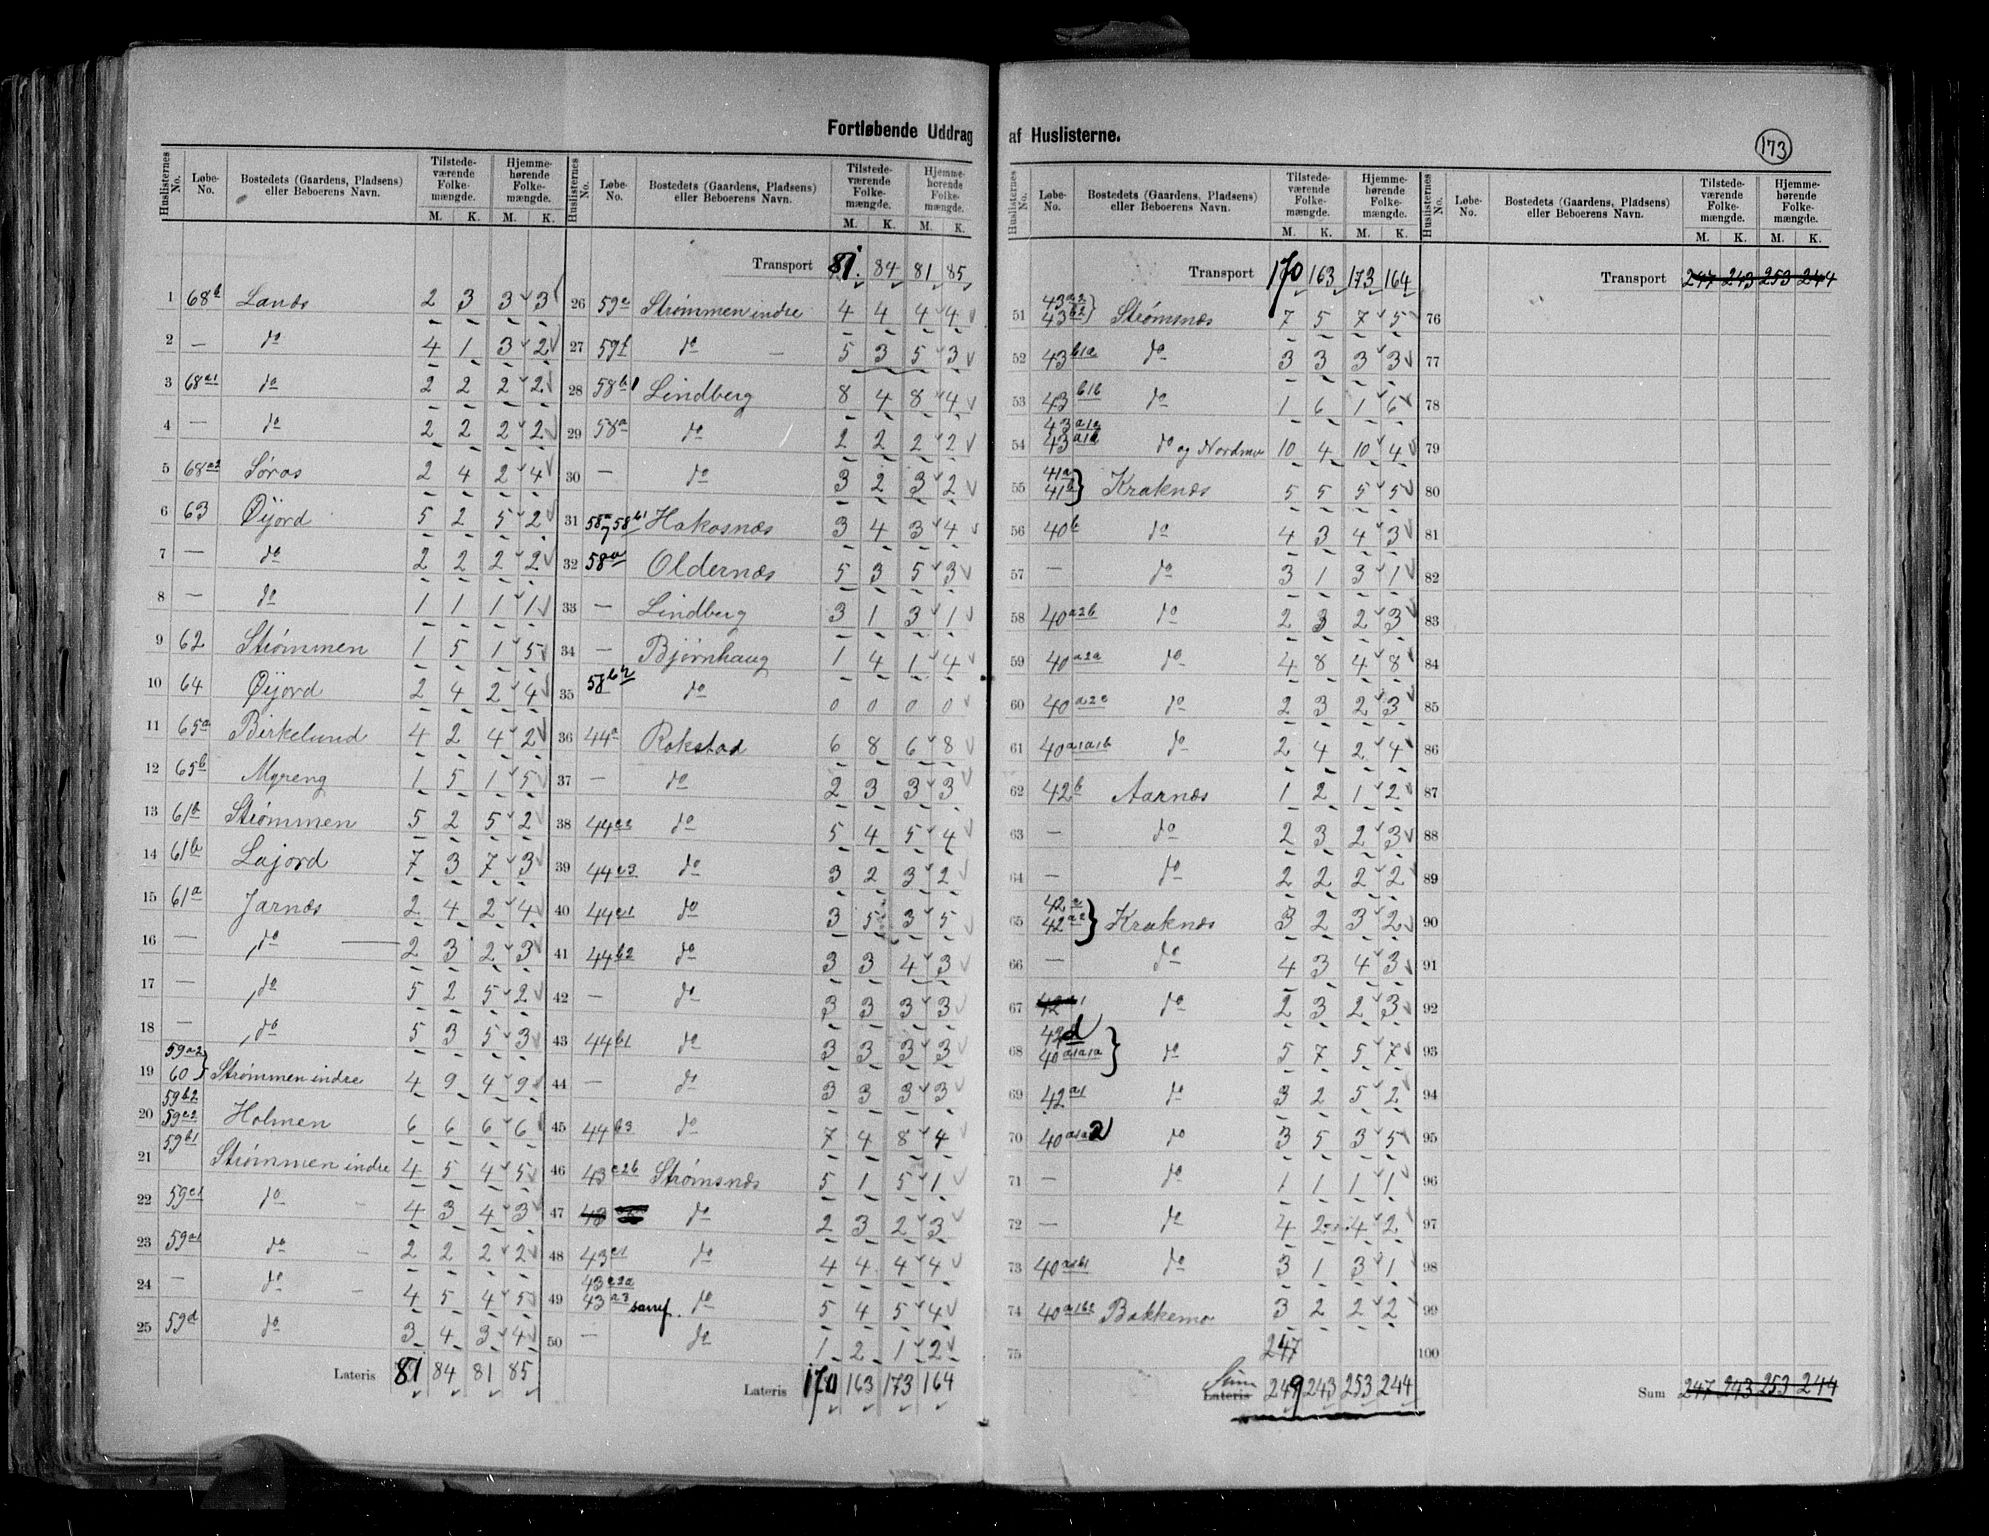 Fortløbende Uddrag af Huslisterne.
173
Huslisternes No. Løbe-No. Bostedets (Gaardens, Pladsens) eller Beboerens Navn. Tilstedeværende Folkemængde. M. K. Hjemmehørende Folkemængde. M. K.
1 68b Lanæs 2 3 3 3
2 — do 4 1 3 2
3 68a1 do 2 2 2 2
4 — do 2 2 2 2
5 68a2 Søras 2 4 2 4
6 63 Øijord 5 2 5 2
7 — do 2 2 2 2
8 — do 1 1 1 1
9 62 Strømmen 1 5 1 5
10 64 Øijord 2 4 2 4
11 65a Birkelund 4 2 4 2
12 65b Myreng 1 5 1 5
13 61a Strømmen 5 2 5 2
14 61b Lajord 7 3 7 3
15 61a Jarnæs 2 4 2 4
16 — do 2 3 2 3
17 — do 5 2 5 2
18 — do 5 3 5 3
19 59a2 60 Strømmen indre 4 9 4 9
20 59b2 59c2 Holmen 6 6 6 6
21 59b1 Strømmen indre 4 5 4 5
22 59c1 do 4 3 4 3
23 59a1 do 2 2 2 2
24 — do 4 5 4 5
25 59d do 3 4 3 4
Lateris 81 84 81 85
Huslisternes No. Løbe-No. Bostedets (Gaardens, Pladsens) eller Beboerens Navn. Tilstedeværende Folkemængde. M. K. Hjemmehørende Folkemængde. M. K.
Transport 81 84 81 85
26 59e Strømmen indre 4 4 4 4
27 59f do 5 3 5 3
28 58b1 Lindberg 8 4 8 4
29 58a do 2 2 2 2
30 — do 3 2 3 2
31 58a 58b1 Hakosnæs 3 4 3 4
32 58a Oldernæs 5 3 5 3
33 — Lindberg 3 1 3 1
34 — Bjørnhaug 1 4 1 4
35 58b2 do 0 0 0 0
36 44a Rokstad 6 8 6 8
37 — do 2 3 3 3
38 44c2 do 5 4 5 4
39 44c3 do 3 2 3 2
40 44c1 do 3 5 3 5
41 44b2 do 3 3 4 3
42 — do 3 3 3 3
43 44b1 do 3 3 3 3
44 — do 3 3 3 3
45 44b3 do 7 4 8 4
46 43c2b Strømsnæs 5 1 5 1
47 43 do 2 3 2 3
48 43c1 do 4 4 4 4
49 43c2a 43a3 saml. do 5 4 5 4
50 — do 1 2 1 2
Lateris 170 163 173 164
Huslisternes No. Løbe-No. Bostedets (Gaardens, Pladsens) eller Beboerens Navn. Tilstedeværende Folkemængde. M. K. Hjemmehørende Folkemængde. M. K.
Transport 170 163 173 164
51 43a2 43b2 Strømsnæs 7 5 7 5
52 43b1a do 3 3 3 3
53 43b1b do 1 6 1 6
54 43a1a 43a1b do og Nordmo 10 4 10 4
55 41a 41b Kraknæs 5 5 5 5
56 40b do 4 3 4 3
57 — do 3 1 3 1
58 40a2b do 2 3 2 3
59 40a2a do 4 8 4 8
60 40a2c do 2 3 2 3
61 40a1a1b do 2 4 2 4
62 42b Aarnæs 1 2 1 2
63 — do 2 3 2 3
64 — do 2 2 2 2
65 42c 42a2 Kraknæs 3 2 3 2
66 — do 4 3 4 3
67 42a1 do 2 3 2 3
68 42d 40a1a1a do 5 7 5 7
69 42a1 do 3 2 5 2
70 40a1a2 do 3 5 3 5
71 — do 1 1 1 1
72 — do 4 2 4 2
73 40a1b1 do 3 1 3 1
74 40a1b2 Bakkemo 3 2 2 2
75 247
Sum Lateris 249 243 253 244
Huslisternes No. Løbe-No. Bostedets (Gaardens, Pladsens) eller Beboerens Navn. Tilstedeværende Folkemængde. M. K. Hjemmehørende Folkemængde. M. K.
Transport 247 243 253 244
76
77
78
79
80
81
82
83
84
85
86
87
88
89
90
91
92
93
94
95
96
97
98
99
100
Sum 247 243 253 244